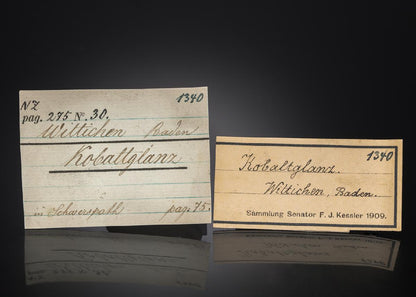 NZ 1340
pag. 275 N. 30.
Wittichen Baden
Kobaltglanz
in Schwerspath pag. 75.
1340
Kobaltglanz.
Wittichen, Baden.
Sammlung Senator F. J. Kessler 1909.